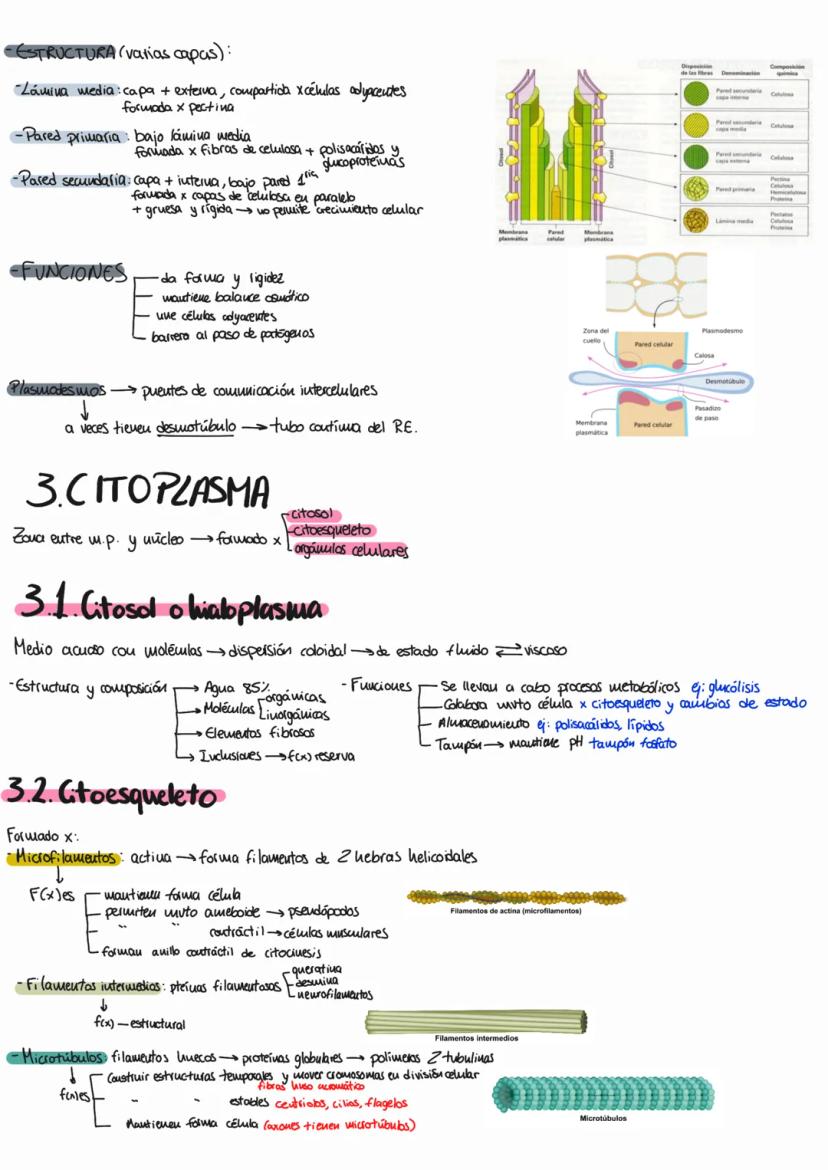 -ESTRUCTURA (varias capas):
-Lámina media: capa + externa, compartida x células adyacentes
formada x pectina
-Pared primaria: bajo lámina media
formada x fibras de celulosa + polisacáridos y
glucoproteínas
-Pared secundaria: capa + interna, bajo pared 1ria
formada x capas de celulosa en paralelo
+ gruesa y rígida → no permite crecimiento celular
Disposición de las fibras
Denominación
Composición química
Pared secundaria capa interna
Celulosa
Pared secundaria capa media
Celulosa
Pared secundaria capa externa
Celulosa
Pared primaria
Pectina
Celulosa
Hemicelulosa
Proteína
Lámina media
Pectatos
Celulosa
Proteína
Citosol
Citosol
Membrana plasmática
Pared celular
Membrana plasmática
-FUNCIONES
da forma y rigidez
mantiene balance osmótico
une células adyacentes
barrera al paso de patógenos
Zona del cuello
Plasmodesmo
Pared celular
Calosa
Desmotúbulo
Pasadizo de paso
Membrana plasmática
Pared celular
Plasmodesmos → puentes de comunicación intercelulares
a veces tienen desmotúbulo → tubo continua del R.E.
3.CITOPLASMA
Zona entre m.p. y núcleo → formado x
citosol
citoesqueleto
orgánulos celulares
3.1.Citosol o hialoplasma
Medio acuoso con moléculas → dispersión coloidal → de estado fluido ⇄ viscoso
-Estructura y composición
→ Agua 85%
→ Moléculas
orgánicas
inorgánicas
→ Elementos fibrosos
→ Inclusiones → f(x) reserva
-Funciones
Se llevan a cabo procesos metabólicos ej: glucólisis
Colabora mvto célula x citoesqueleto y cambios de estado
Almacenamiento ej: polisacáridos, lípidos
Tampón → mantiene pH tampón fosfato
3.2.Citoesqueleto
Formado x:
-Microfilamentos: actina → forma filamentos de 2 hebras helicoidales
F(x)es
mantienen forma célula
permiten mvto ameboide → pseudópodos
" " contráctil → células musculares
forman anillo contráctil de citocinesis
Filamentos de actina (microfilamentos)
-Filamentos intermedios: pteínas filamentosas
queratina
desmina
neurofilamentos
f(x) — estructural
Filamentos intermedios
-Microtúbulos: filamentos huecos → proteínas globulares → polímeros 2 tubulinas
f(x)es
Construir estructuras temporales y mover cromosomas en división celular
fibras huso acromático
" " estables centriolos, cilios, flagelos
Mantienen forma célula (axones tienen microtúbulos)
Microtúbulos